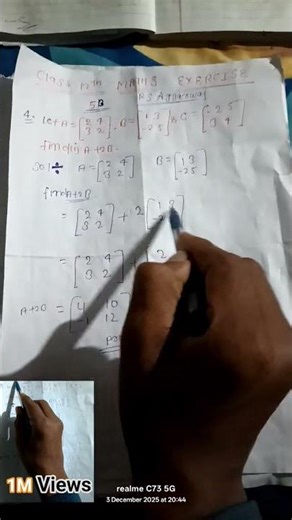 Class 12th MATHS EXERCISE
5B RS Aggarwal
4. Let A = [2 4 3 2], B = [1 3 -2 5] & C = [-2 5 3 4]
find (i) A+2B
Sol ÷ A = [2 4 3 2] B = [1 3 -2 5]
find A+2B
= [2 4 3 2] + 2 [1 3
= [2 4 3 2] + [2
A+2B = [4 10 -1 12]
1M Views
realme C73 5G
3 December 2025 at 20:44